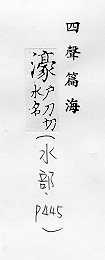 四聲篇海
濠戶刀切
水名
(水部、P445)